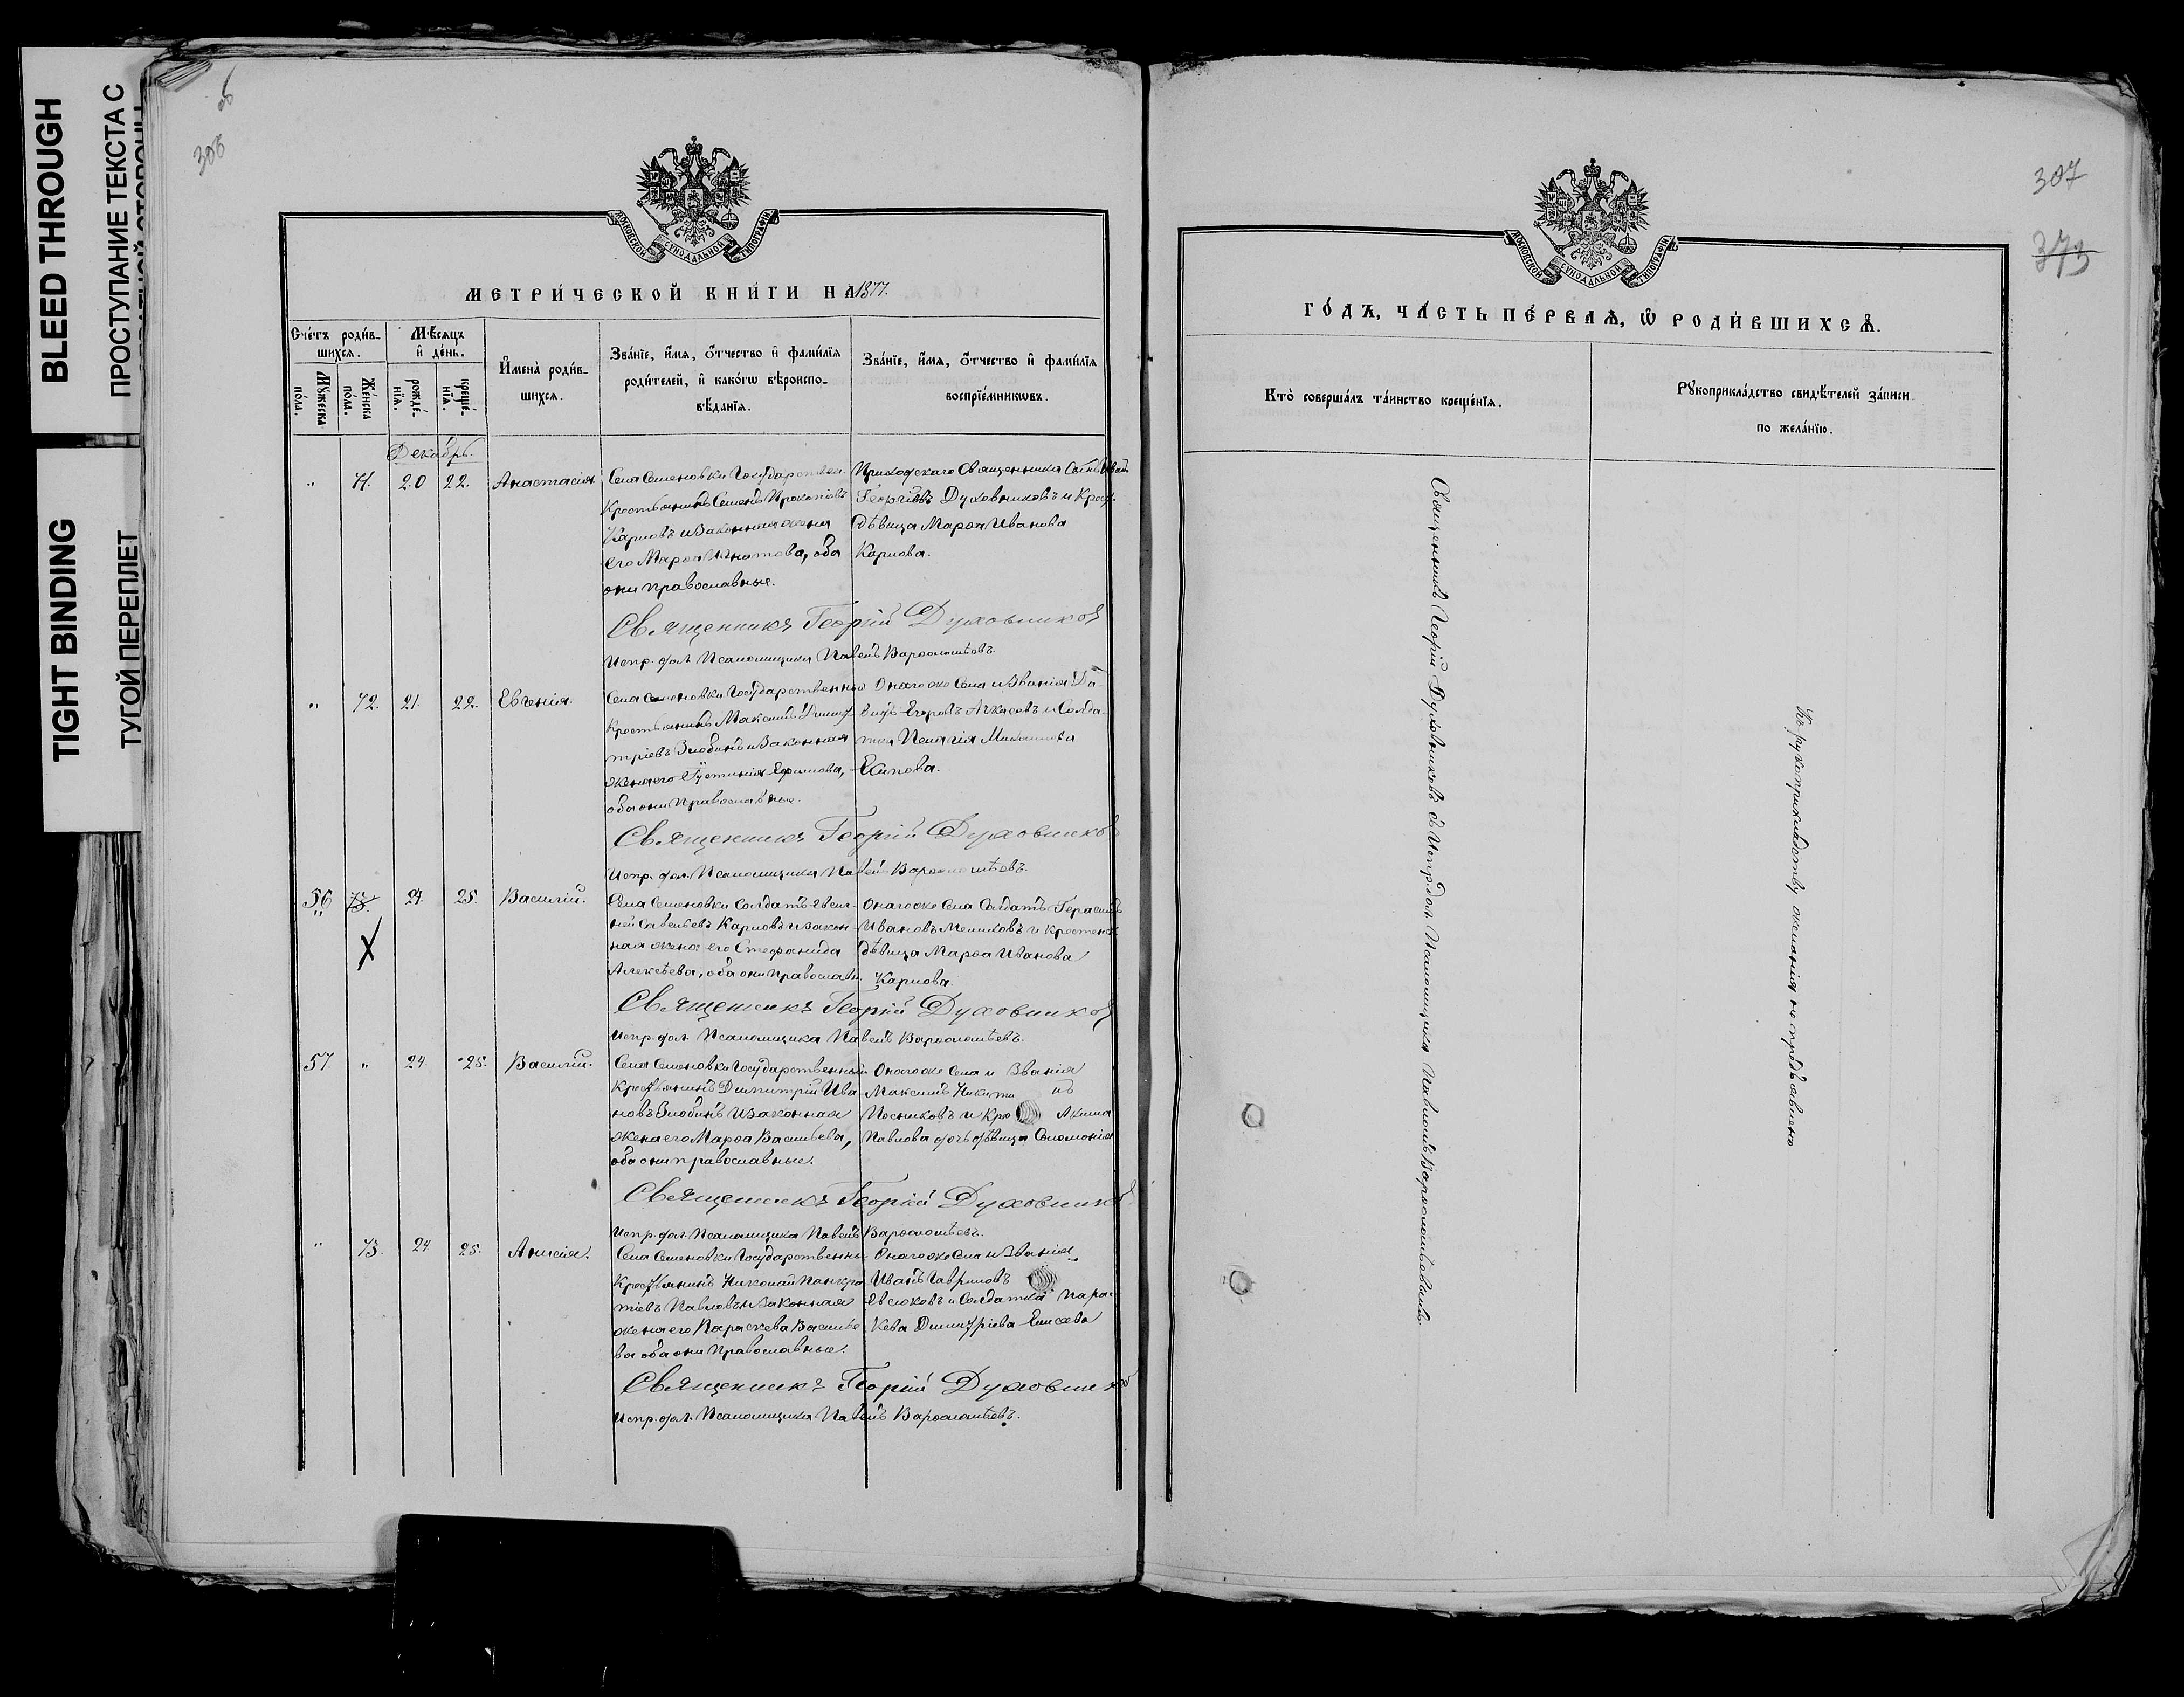 BLEED THROUGH
ПРОСТУПАНИЕ ТЕКСТА С
TIGHT BINDING
ТУГОЙ ПЕРЕПЛЕТ
об
306
МОСКОВСКОЙ СѴНОДАЛЬНОЙ ТИПОГРАФІИ
МЕТРИ́ЧЕСКОЙ КНИ́ГИ НА 1877.
Сче́тъ роди́в-
шихсѧ.
Мѣ́сѧцъ
и҆ де́нь.
Мꙋ́жеска
по́ла.
Же́нска
по́ла.
рожде́-
нїѧ.
креще́-
нїѧ.
И҆мена̀ роди́в-
шихсѧ.
Зва́нїе, и҆́мѧ, ѻ҆́тчество и҆ фами́лїѧ
роди́телей, и҆ како́гѡ вѣроиспо-
вѣ́данїѧ.
Зва́нїе, и҆́мѧ, ѻ҆́тчество и҆ фами́лїѧ
воспрїе́мникѡвъ.
Декабрь.
" 71. 20 22. Анастасія
Села Семеновки Государствен.
Крестьянинъ Семенъ Прокопіевъ
Карповъ и законная жена
его Марѳа Игнатова, оба
они православные.
Приходскаго Священника Сынъ Иванъ
Георгіевъ Духовниковъ и Крест.
дѣвица Марѳа Иванова
Карпова.
Священникъ Георгій Духовников
Испр. дол. Псаломщика Павелъ Варѳоломѣевъ.
" 72. 21. 22. Евгенія.
Села Семеновки Государственный
Крестьянинъ Максимъ Дими-
тріевъ Злобинъ и Законная
жена его Іустинія Ефимова,
оба они Православные.
Онагоже Села и Званія Да-
видъ Егоровъ Ачкасовъ и Солда-
тка Пелагія
Есипова.
Священникъ Георгій Духовников
Испр. дол. Псаломщика Павелъ Варѳоломѣевъ.
56 73. 24. 25. Василій.
Села Семеновки Солдатъ Евсиг-
ней Савельевъ Карповъ и закон-
ная жена его Стефанида
Алексѣева, оба они православн.
Онагоже Села Солдатъ Герасимъ
Ивановъ Мешковъ и крестьянс.
дѣвица Марѳа Иванова
Карпова.
Священникъ Георгій Духовников
Испр. дол. Псаломщика Павелъ Варѳоломѣевъ.
57 " 24. 25. Василій.
Села Семеновки Государственный
Крестьянинъ Димитрій Ива-
новъ Злобинъ и Законная
жена его Марѳа Васильева,
оба они православные.
Онагоже Села и Званія
Максимъ Никити нъ
Песниковъ и Кре Акима
Павлова дочь дѣвица Соломонія
Священникъ Георгій Духовников
Испр. дол. Псаломщика Павелъ Варѳоломѣевъ.
" 73. 24 25. Анисія.
Села Семеновки Государственны
Крестьянинъ Николай Панкра-
тіевъ Павловъ и Законная
жена его Параскева Василье-
ва оба они Православные.
Онагоже Села и Званія
Иванъ Гавриловъ
Евсюковъ и Солдатка Парас-
кева Димитріева Елисѣева
Священникъ Георгій Духовников
Испр. дол. Псаломщика Павелъ Варѳоломѣевъ.
307
373
МОСКОВСКОЙ СѴНОДАЛЬНОЙ ТИПОГРАФІИ
ГО́ДЪ, ЧА́СТЬ ПЕ́РВАѦ, Ѡ҆ РОДИ́ВШИХСѦ.
Кто̀ соверша́лъ та́инство креще́нїѧ.
Рꙋкоприкла́дство свидѣ́телей за́писи
по жела́нїю.
Священникъ Георгій Духовниковъ съ Испр. дол. Псаломщика Павломъ Варѳоломѣевымъ.
Къ рукоприкладству желанія не предъявлено